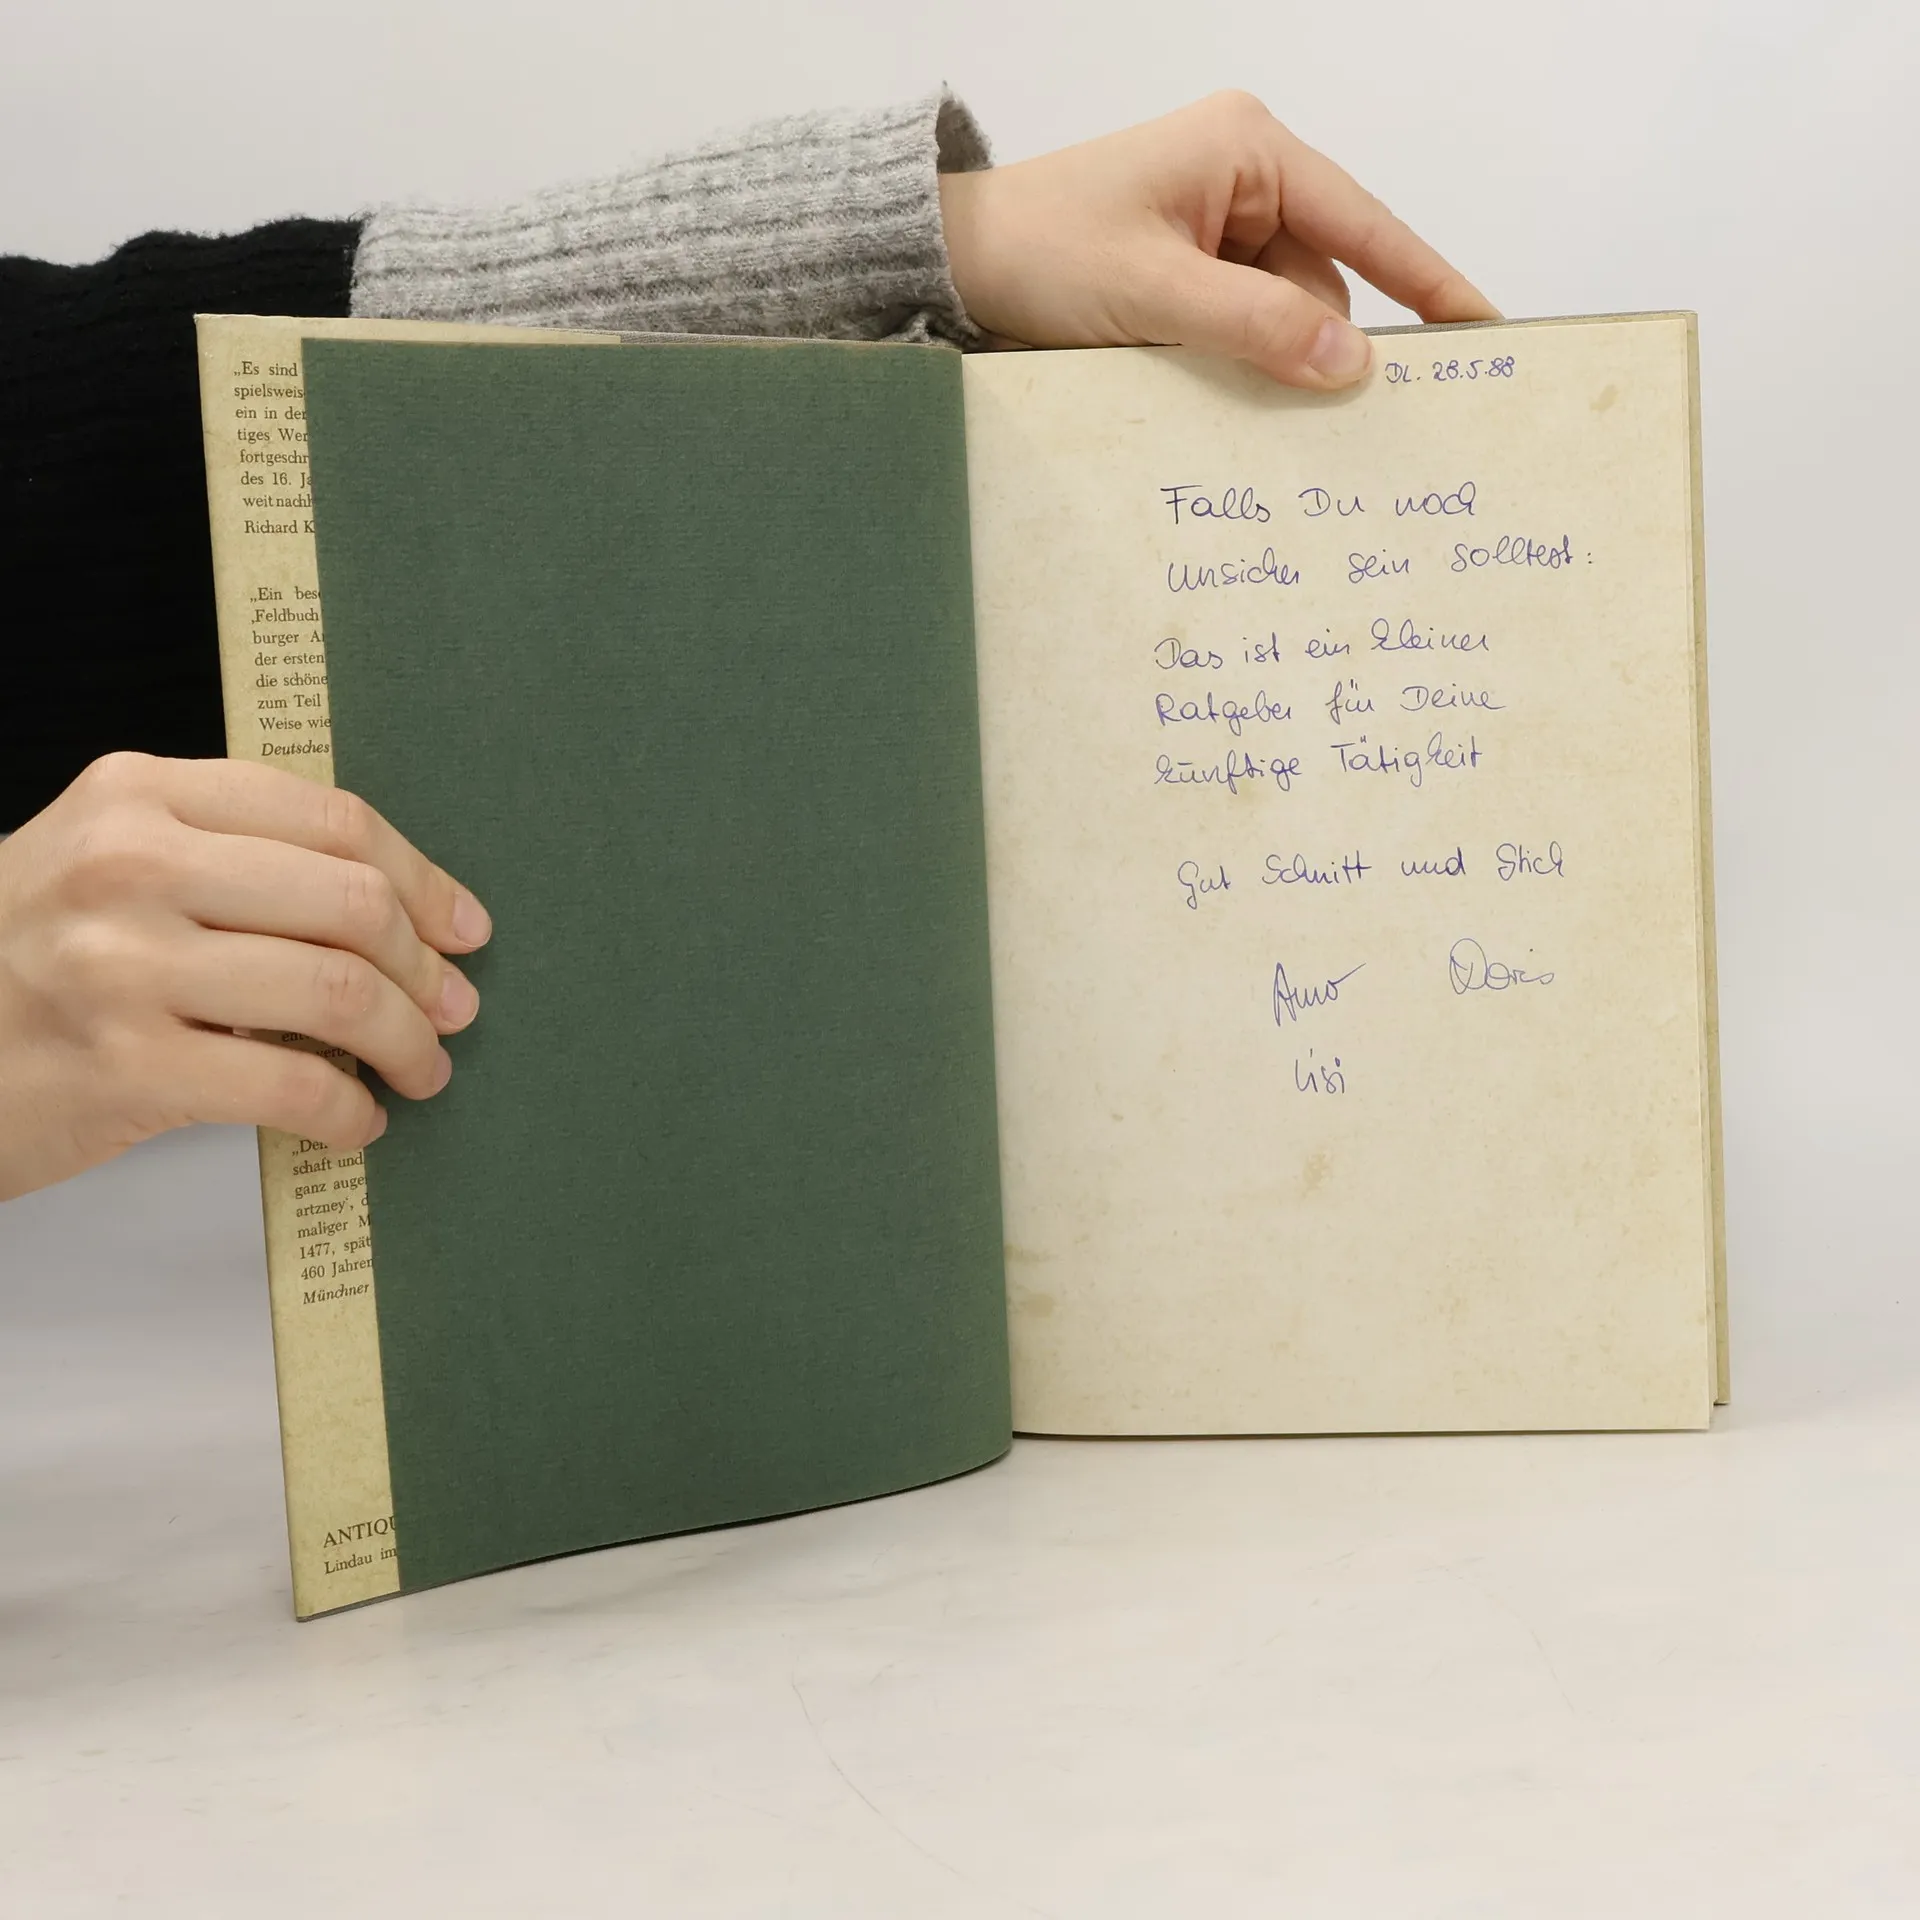 „Es sind
spielsweis
ein in der
tiges Wer
fortgeschr
des 16. Ja
weit nachh
Richard K
„Ein bes
‚Feldbuch
burger A
der ersten
die schöne
zum Teil
Weise wie
Deutsches
schaft und
ganz auge
artzney‘, d
maliger M
1477, spät
460 Jahren
Münchner
ANTIQU
Lindau im
DL. 28.5.88
Falls Du noch
unsicher sein solltest:
Das ist ein kleiner
Ratgeber für Deine
künftige Tätigkeit
Gut Schnitt und Stich
Arno Doris
Lisi